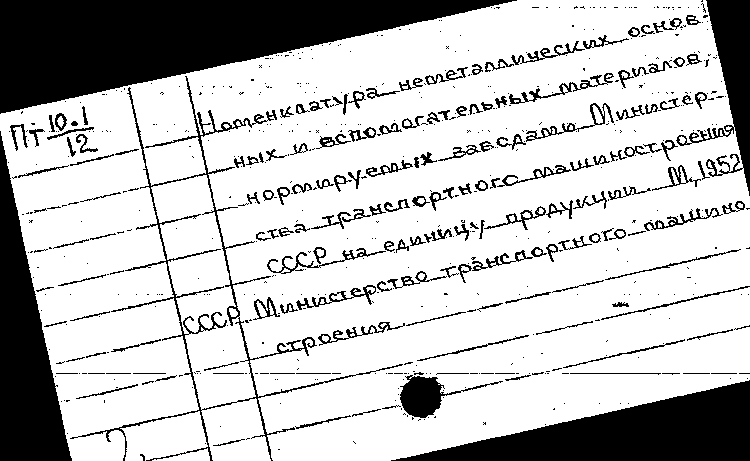 Пт 10.1/12
Номенклатура неметаллических основ-
ных и вспомогательных материалов,
нормируемых заводами Министер-
ства транспортного машиностроения
СССР на единицу продукции. М., 1952
СССР. Министерство транспортного машино
строения
2.